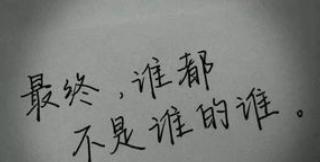 最终，谁都
不是谁的谁。